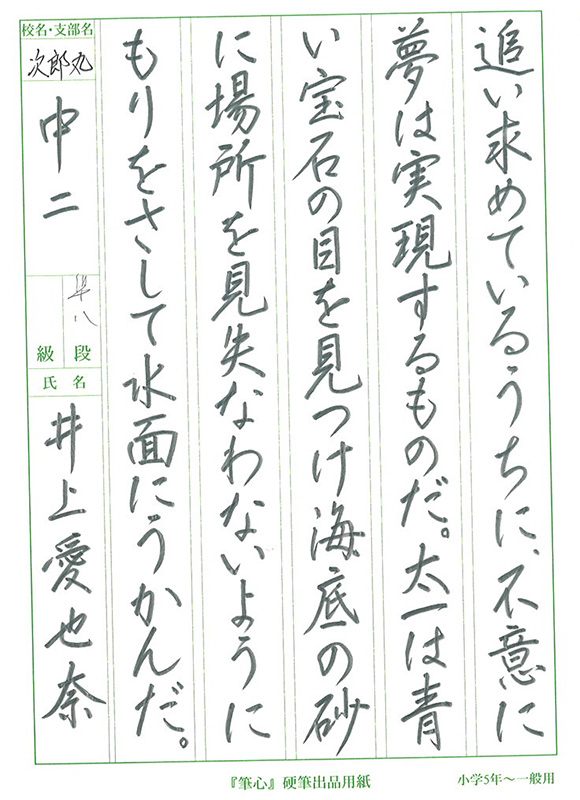 追い求めているうちに、不意に
夢は実現するものだ。太一は青
い宝石の目を見つけ海底の砂
に場所を見失なわないように
もりをさして水面にうかんだ。
校名・支部名
次郎丸
中二
準八
段
級
氏名
井上愛也奈
『筆心』硬筆出品用紙
小学5年〜一般用